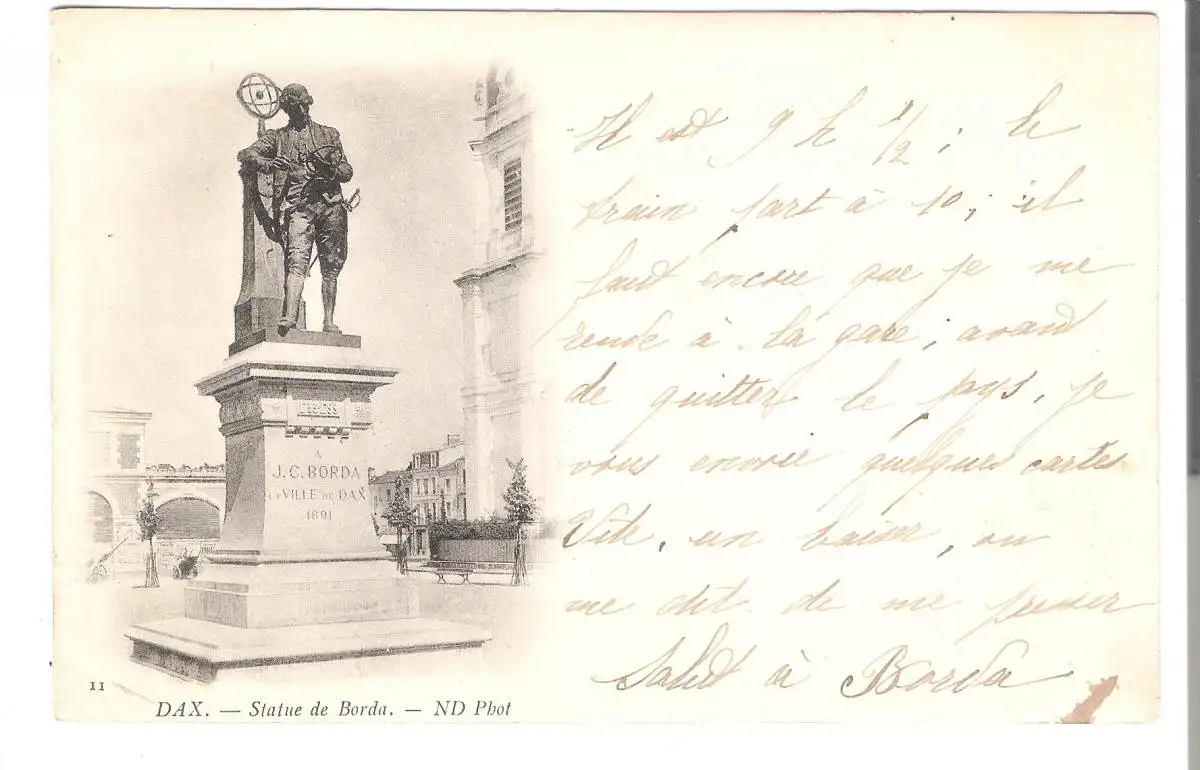 A
J.C. BORDA
LA VILLE DE DAX
1891
11
DAX. — Statue de Borda. — ND Phot
Il est 9 h 1/2 ; le
train part à 10 ; il
faut encore que je me
rende à la gare ; avant
de quitter le pays, je
vous envoie quelques cartes
Vite, un baiser, on
me dit de me presser
Salut à Borda